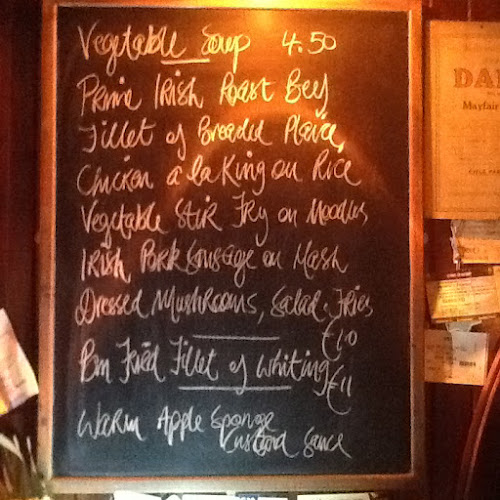 Vegetable Soup 4.50
Prime Irish Roast Beef
Fillet of Breaded Plaice,
Chicken a la King on Rice
Vegetable Stir Fry on Noodles
Irish Pork Sausage on Mash
Dressed Mushrooms, Salad. Fries
€10
Pan Fried Fillet of Whiting
€11
Warm Apple Sponge
Custard Sauce
DA
Mayfair